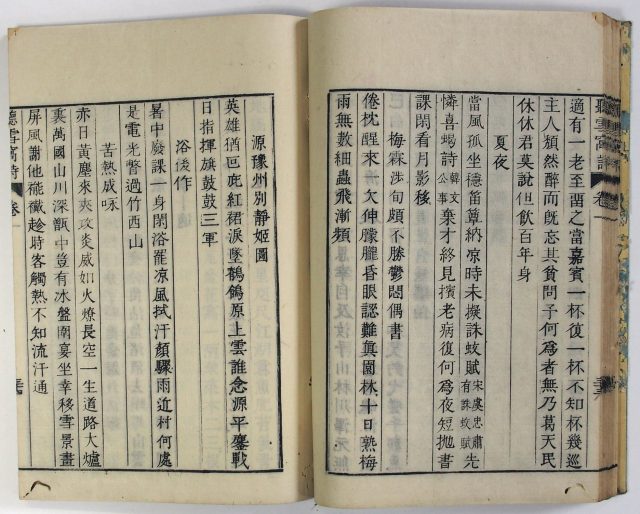 適有一老至酉之當嘉賓一杯復一杯不知杯幾巡
主人頽然醉而既忘其貧問子何爲者無乃葛天民
休休君莫說但飲百年身
夏夜
當風孤坐穩苗簟納凉時未擬誅蚊賦宋虞忠肅有誅蚊賦先
憐喜蝎詩韓文公事棄才終見擯老病復何爲夜短拋書
課閑看月影移
梅霖涉旬頗不勝鬱悶偶書
倦枕醒來一欠伸朦朧昏眼認難眞園林十日熟梅
雨無數細蟲飛漸頻
聽雪窩詩 卷一
源豫州別靜姬圖
英雄猶回庇紅裙淚墜鶺鴒原上雲誰念源平鏖戰
日指揮旗鼓鼓三軍
浴後作
暑中廢課一身閑浴罷凉風拭汗顏驟雨近村何處
是電光瞥過竹西山
苦熱戚咏
赤日黃塵來夾攻炎威如火燎長空一生道路大爐
裏萬國山川深甑中豈有冰盤開宴坐幸移雪景畫
屏風謝他襁襶趁時客觸熱不知流汗通
聽雪窩詩 卷一